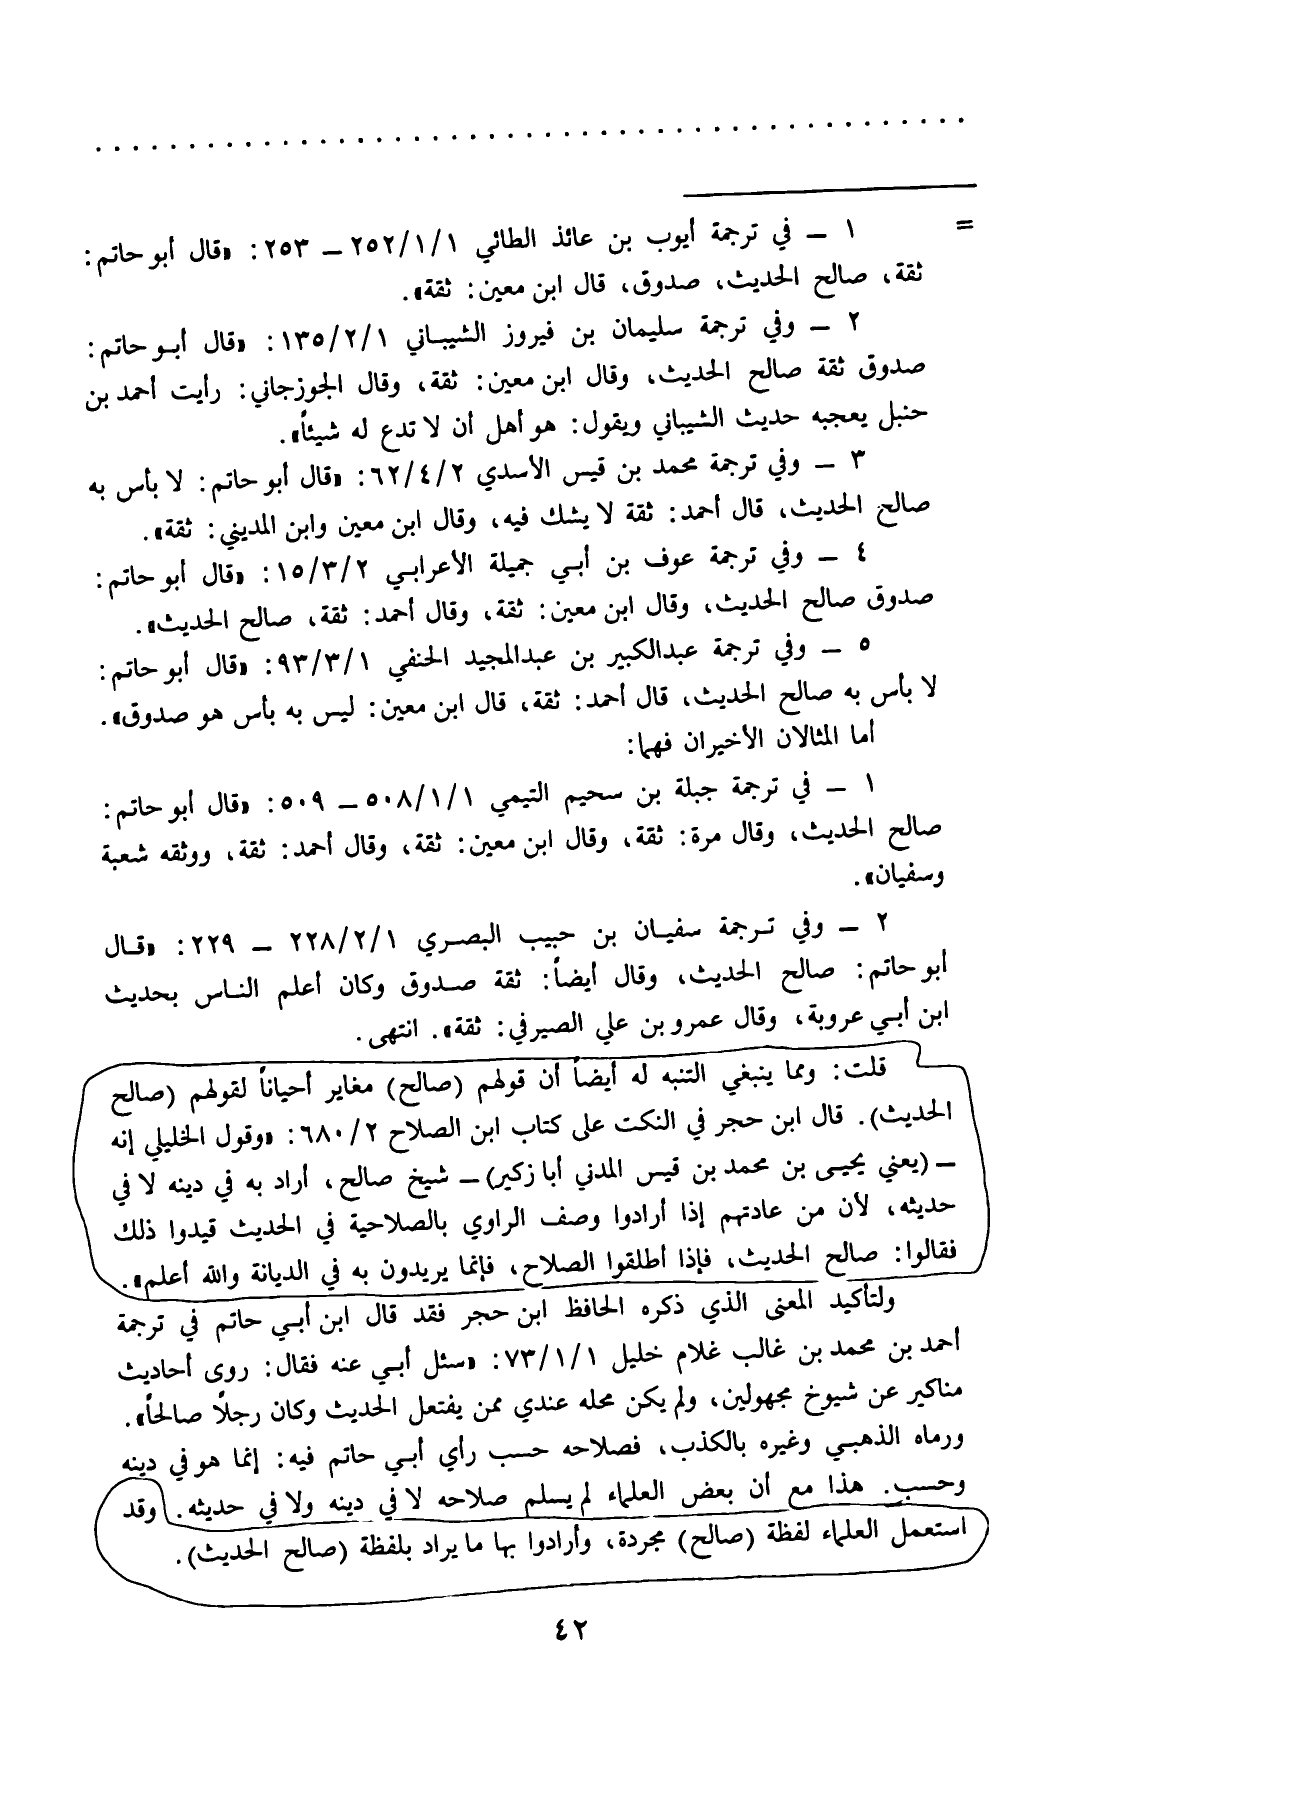 . . . . . . . . . . . . . . . . . . . . . . . . . . . . . . . . . . . . . . . . . . . . . . .
= ١ ـ في ترجمة أيوب بن عائذ الطائي ٢٥٢/١/١ ـ ٢٥٣: «قال أبو حاتم:
ثقة، صالح الحديث، صدوق، قال ابن معين: ثقة».
٢ ـ وفي ترجمة سليمان بن فيروز الشيباني ١٣٥/٢/١: «قال أبو حاتم:
صدوق ثقة صالح الحديث، وقال ابن معين: ثقة، وقال الجوزجاني: رأيت أحمد بن
حنبل يعجبه حديث الشيباني ويقول: هو أهل أن لا تدع له شيئاً».
٣ ـ وفي ترجمة محمد بن قيس الأسدي ٦٢/٤/٢: «قال أبو حاتم: لا بأس به
صالح الحديث، قال أحمد: ثقة لا يشك فيه، وقال ابن معين وابن المديني: ثقة».
٤ ـ وفي ترجمة عوف بن أبي جميلة الأعرابي ١٥/٣/٢: «قال أبو حاتم:
صدوق صالح الحديث، وقال ابن معين: ثقة، وقال أحمد: ثقة، صالح الحديث».
٥ ـ وفي ترجمة عبدالكبير بن عبدالمجيد الحنفي ٩٣/٣/١: «قال أبو حاتم:
لا بأس به صالح الحديث، قال أحمد: ثقة، قال ابن معين: ليس به بأس هو صدوق».
أما المثالان الأخيران فهما:
١ ـ في ترجمة جبلة بن سحيم التيمي ٥٠٨/١/١ ـ ٥٠٩: «قال أبو حاتم:
صالح الحديث، وقال مرة: ثقة، وقال ابن معين: ثقة، وقال أحمد: ثقة، ووثقه شعبة
وسفيان».
٢ ـ وفي ترجمة سفيان بن حبيب البصري ٢٢٨/٢/١ ـ ٢٢٩: «قال
أبو حاتم: صالح الحديث، وقال أيضاً: ثقة صدوق وكان أعلم الناس بحديث
ابن أبي عروبة، وقال عمرو بن علي الصيرفي: ثقة». انتهى.
قلت: ومما ينبغي التنبه له أيضاً أن قولهم (صالح) مغاير أحياناً لقولهم (صالح
الحديث). قال ابن حجر في النكت على كتاب ابن الصلاح ٦٨٠/٢: «وقول الخليلي إنه
ـ (يعني يحيى بن محمد بن قيس المدني أبا زكير) ـ شيخ صالح، أراد به في دينه لا في
حديثه، لأن من عادتهم إذا أرادوا وصف الراوي بالصلاحية في الحديث قيدوا ذلك
فقالوا: صالح الحديث، فإذا أطلقوا الصلاح، فإنما يريدون به في الديانة والله أعلم».
ولتأكيد المعنى الذي ذكره الحافظ ابن حجر فقد قال ابن أبي حاتم في ترجمة
أحمد بن محمد بن غالب غلام خليل ٧٣/١/١: «سئل أبي عنه فقال: روى أحاديث
مناكير عن شيوخ مجهولين، ولم يكن محله عندي ممن يفتعل الحديث وكان رجلاً صالحاً».
ورماه الذهبي وغيره بالكذب، فصلاحه حسب رأي أبي حاتم فيه: إنما هو في دينه
وحسب. هذا مع أن بعض العلماء لم يسلم صلاحه لا في دينه ولا في حديثه. وقد
استعمل العلماء لفظة (صالح) مجردة، وأرادوا بها ما يراد بلفظة (صالح الحديث).
٤٢